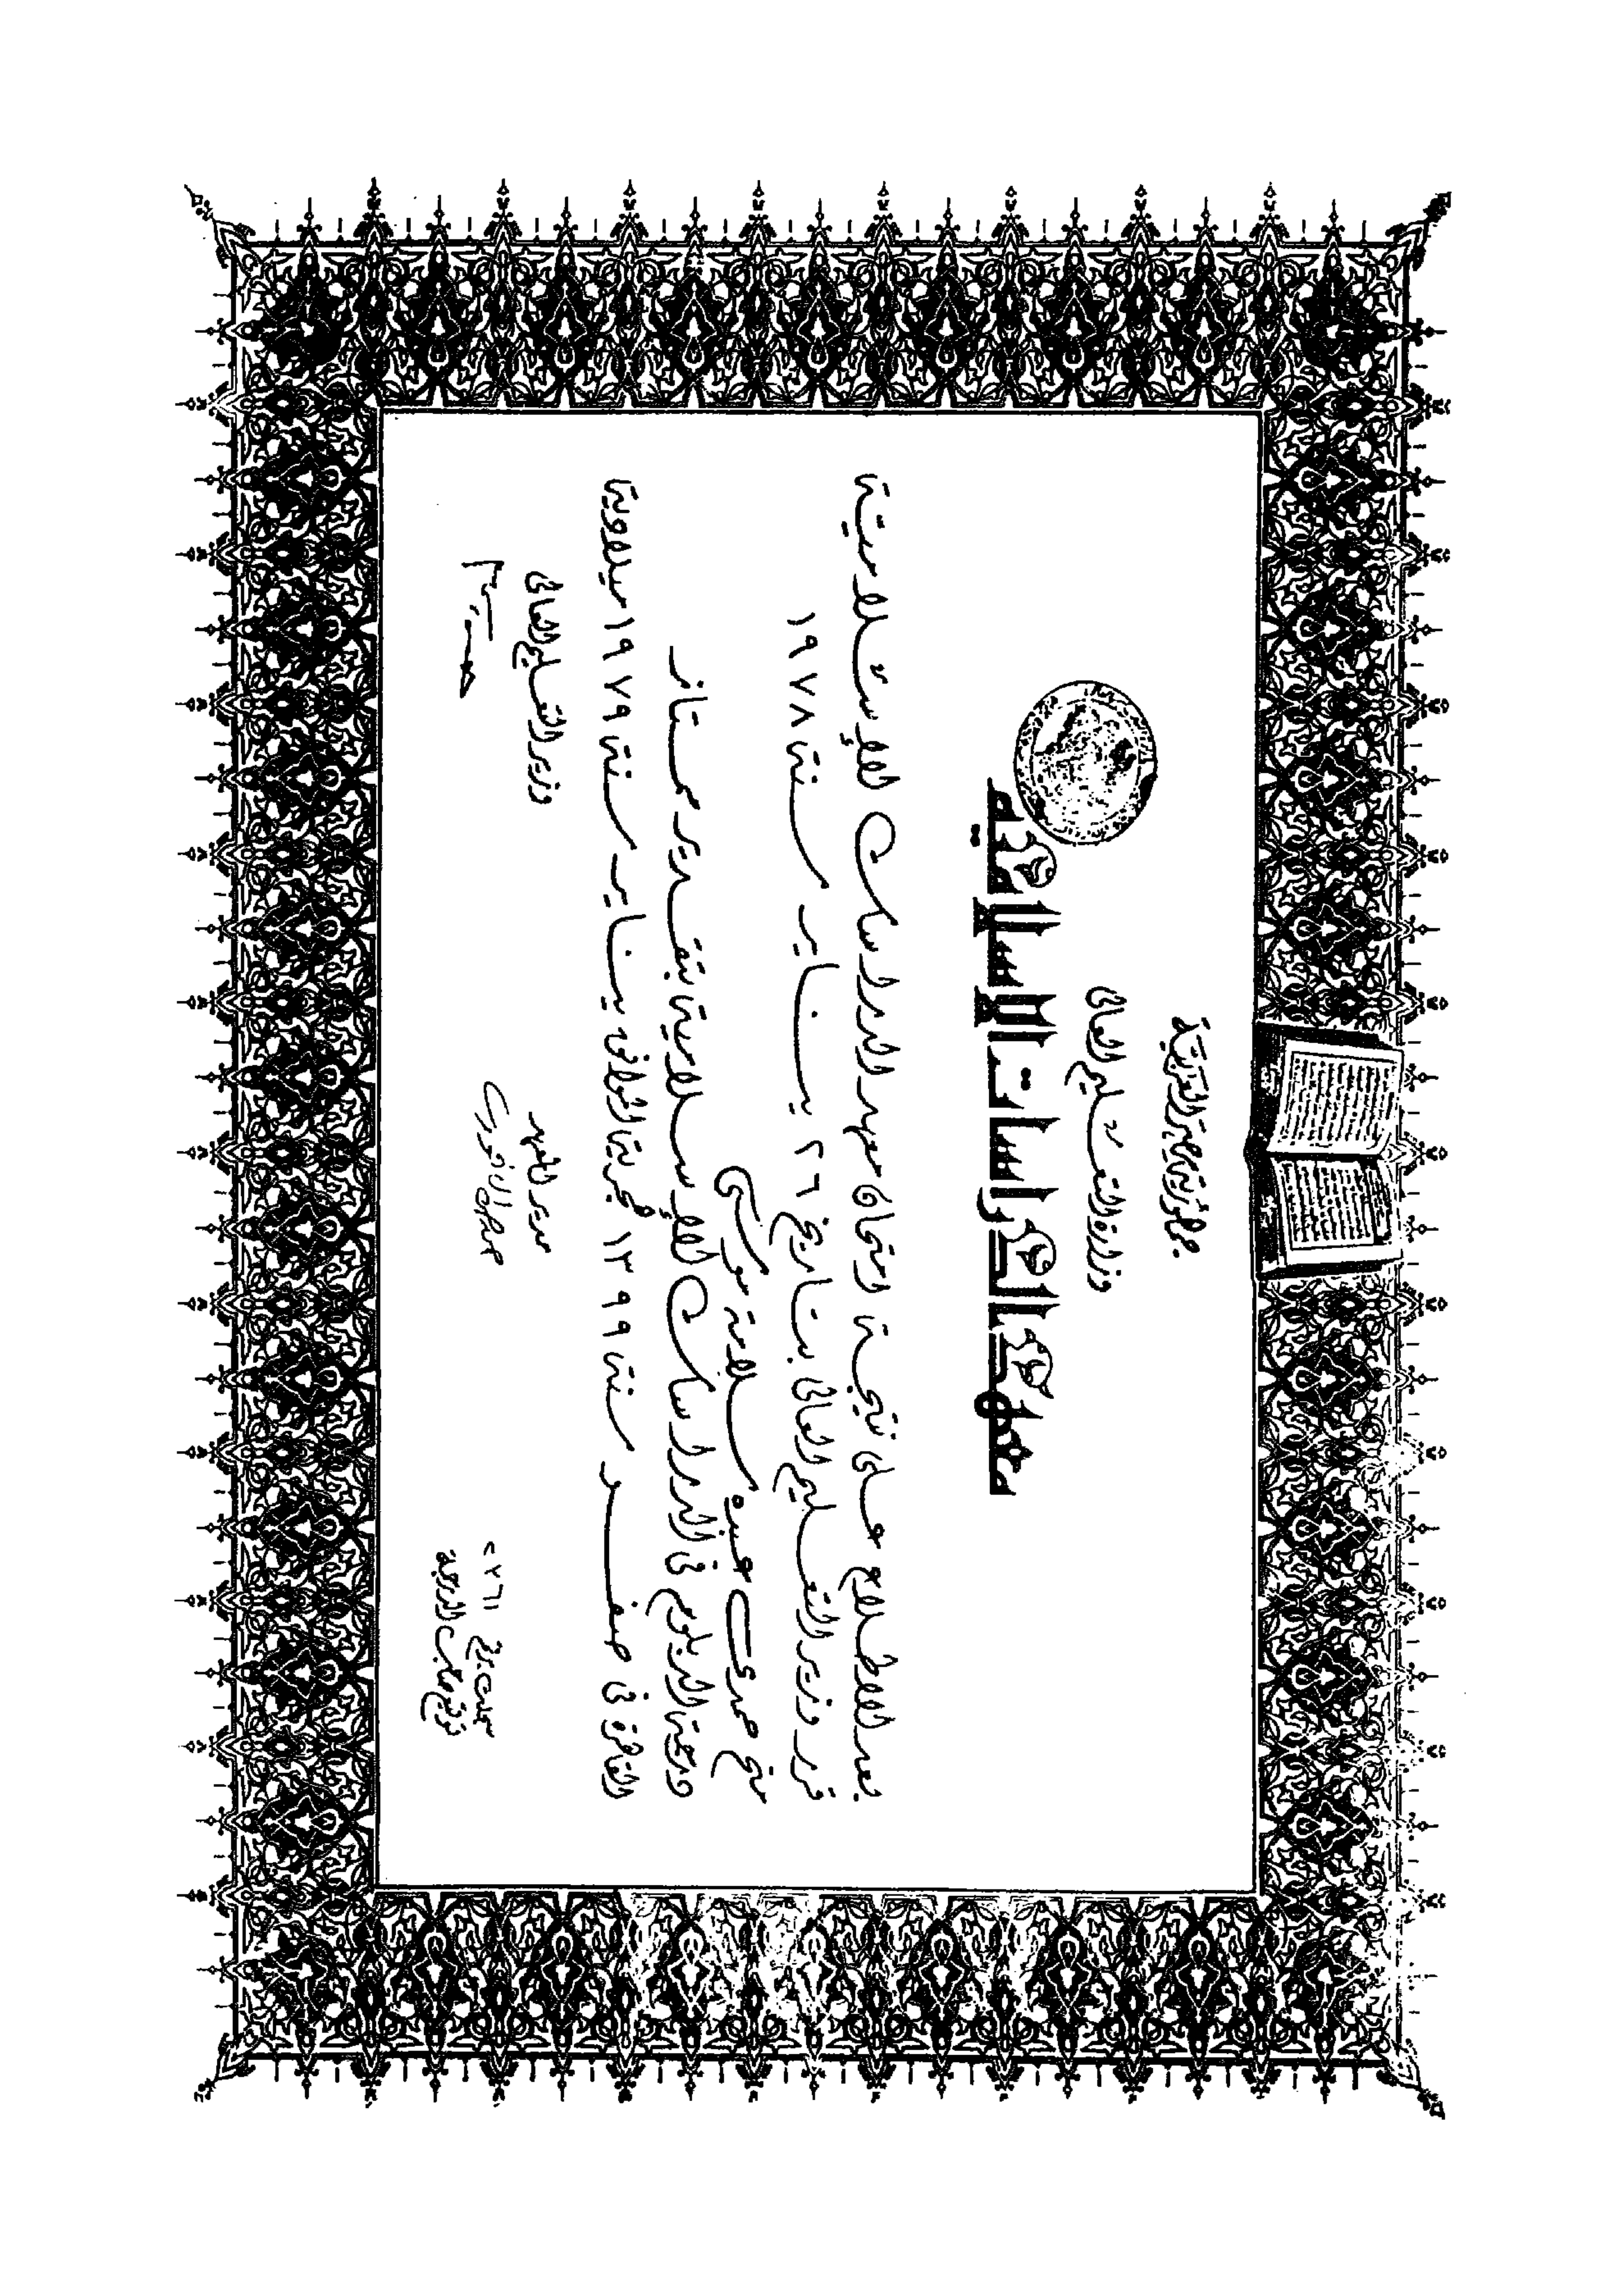 جمهورية مصر العربية
وزارة التعليم العالى
معهد الدراسات الإسلامية
بعد الاطلاع على نتيجة امتحان معهد الدراسات الإسلامية
قرر وزير التعليم العالى بتاريخ ٢٦ يناير سنة ١٩٧٨
منح حمدى سلامة موسى
درجة الدبلوم فى الدراسات الإسلامية بتقدير ممتاز
القاهرة فى صفر سنة ١٣٩٩ هجرية الموافق يناير سنة ١٩٧٩ ميلادية
وزير التعليم العالى
مدير المعهد
توقيع صاحب الدرجة